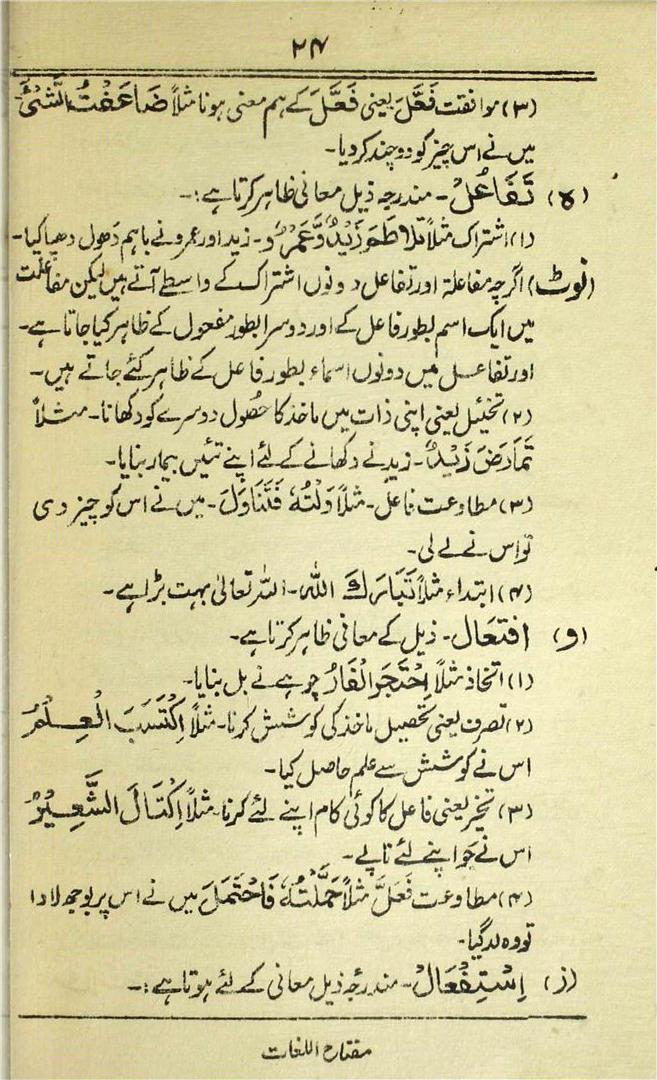 ۲۴
(۳) موافقت فَعَّلَ یعنی فَعَّلَ کے ہم معنی ہونا مثلاً ضَاعَفْتُ الشَّیْئَ
میں نے اس چیز کو دوچند کر دیا۔
(ہ) تَفَاعُلْ۔ مندرجہ ذیل معانی ظاہر کرتا ہے:۔
(۱) اشتراک مثلاً تلاطَمَ زَیْدٌ وَّعَمْرٌو۔ زید اور عمرو نے باہم دَھول دھپا کیا۔
(نوٹ) اگرچہ مفاعلة اور تفاعل دونوں اشتراک کے واسطے آتے ہیں لیکن مفاعلت
میں ایک اسم بطور فاعل کے اور دوسرا بطور مفعول کے ظاہر کیا جاتا ہے۔
اور تفاعل میں دونوں اسماء بطور فاعل کے ظاہر کئے جاتے ہیں۔
(۲) تخئیل یعنی اپنی ذات میں ماخذ کا حصُول دوسرے کو دکھانا۔ مثلاً
تَمَارَضَ زَیْدٌ۔ زید نے دکھانے کے لئے اپنے تئیں بیمار بنایا۔
(۳) مطاوعت فاعل۔ مثلاً وَلْتُهٗ فَتَنَاوَلَ۔ میں نے اس کو چیز دی
تو اس نے لے لی۔
(۴) ابتداء مثلاً تَبَارَكَ اللّٰہ۔ اللہ تعالیٰ بہت بڑا ہے۔
(و) افتعال۔ ذیل کے معانی ظاہر کرتا ہے۔
(۱) اتخاذ مثلاً اِحْتَجَرَ الْفَارُ چوہے نے بل بنایا۔
(۲) تصرف یعنی تحصیل ماخذ کی کوشش کرنا۔ مثلاً اِکْتَسَبَ الْعِلْمُ
اس نے کوشش سے علم حاصل کیا۔
(۳) تخیّر یعنی فاعل کا کوئی کام اپنے لئے کرنا۔ مثلاً اِکْتَالَ الشَّعِیْرُ
اس نے جَو اپنے لئے ناپے۔
(۴) مطاوعت فَعَلَّ مثلاً حَمَّلْتُهٗ فَاحْتَمَلَ میں نے اس پر بوجھ لادا
تو وہ لد گیا۔
(ز) اِسْتِفْعَالْ۔ مندرجۂ ذیل معانی کے لئے ہوتا ہے:۔
مفتاح اللغات